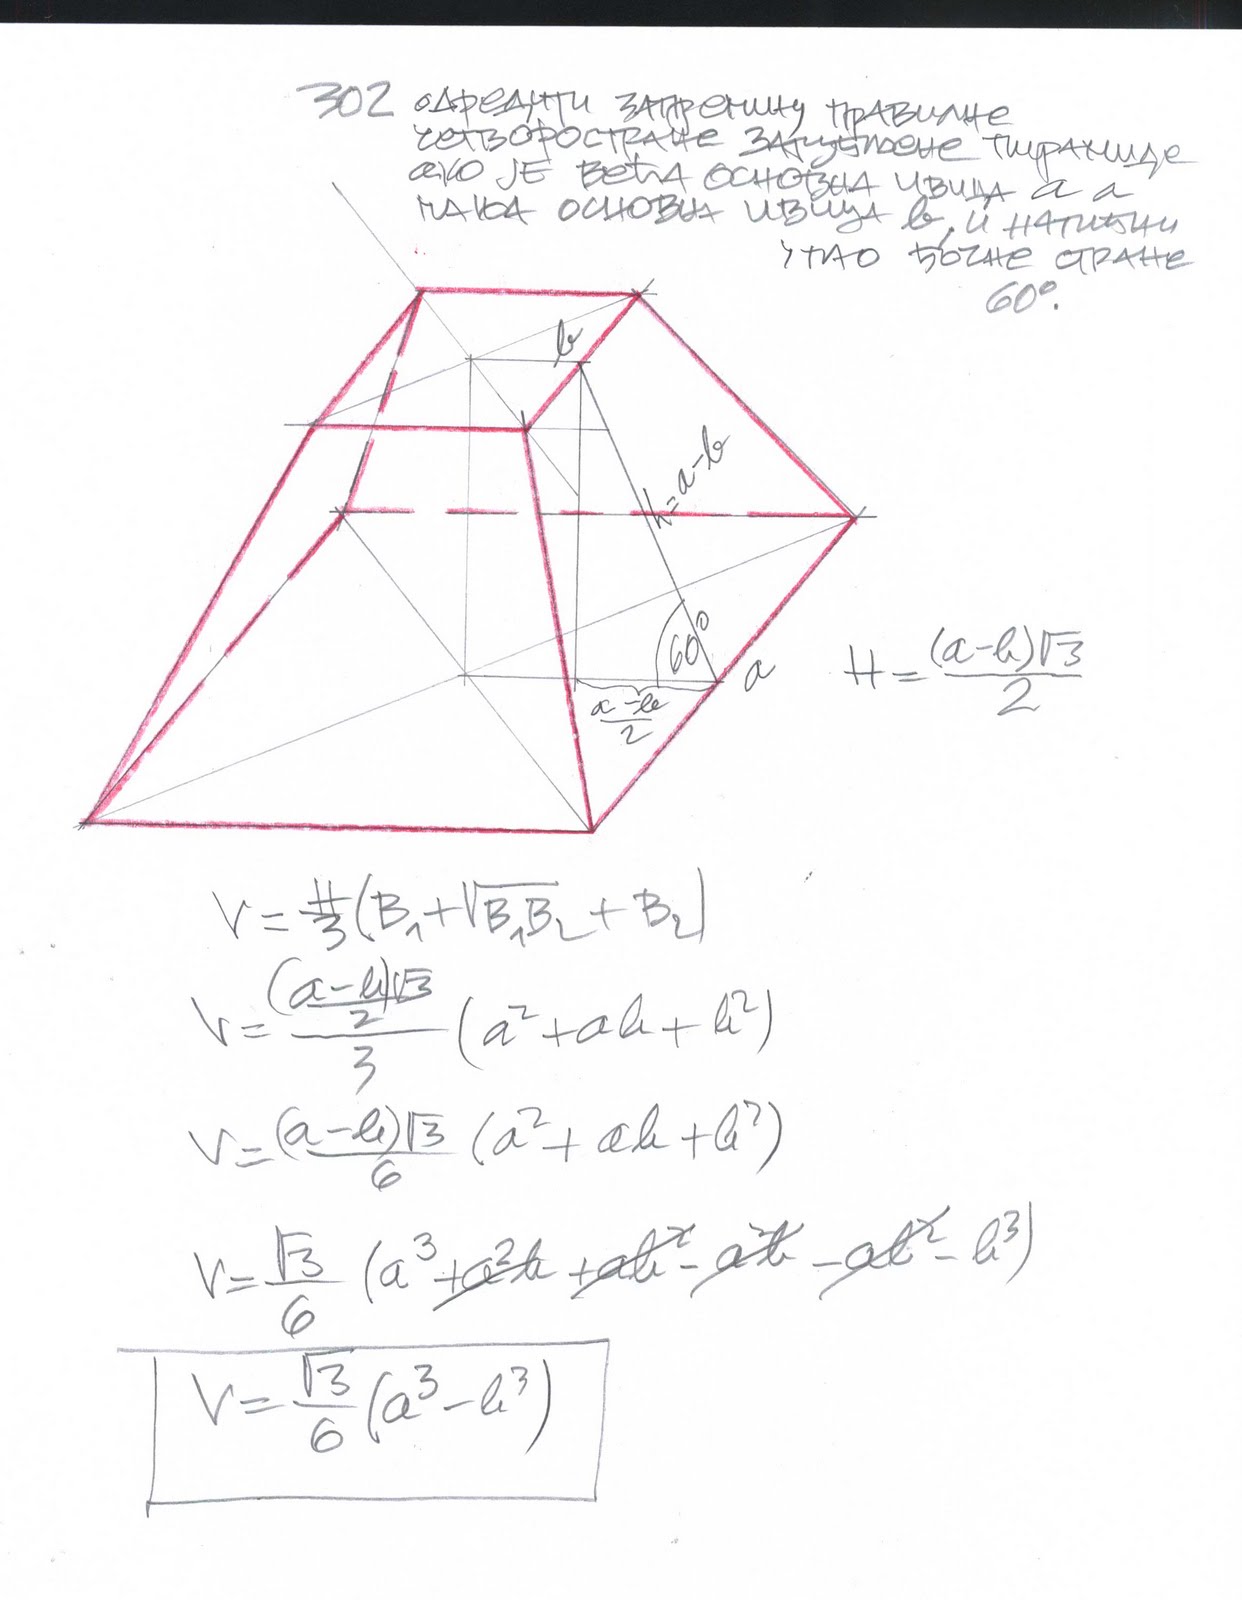 302 ОДРЕДИТИ ЗАПРЕМИНУ ПРАВИЛНЕ
ЧЕТВОРОСТРАНЕ ЗАРУБЉЕНЕ ПИРАМИДЕ
АКО ЈЕ ВЕЋА ОСНОВНА ИВИЦА a А
МАЊА ОСНОВНА ИВИЦА b, И НАГИБНИ
УГАО БОЧНЕ СТРАНЕ
60°.
b
h=a-b
60°
a
(a-b)/2
H = (a-b)√3/2
V = H/3 (B₁ + √B₁B₂ + B₂)
V = ((a-b)√3/2)/3 (a² + ab + b²)
V = (a-b)√3/6 (a² + ab + b²)
V = √3/6 (a³ + a²b + ab² - a²b - ab² - b³)
V = √3/6 (a³ - b³)